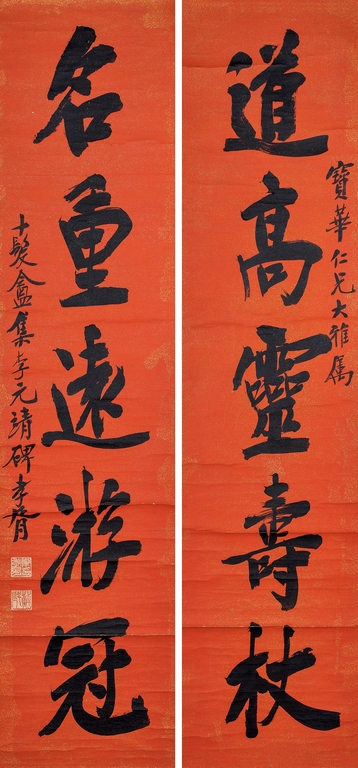 道高靈壽杖
寶華仁兄大雅属
名重遠游冠
十髮盦集李元靖碑孝胥